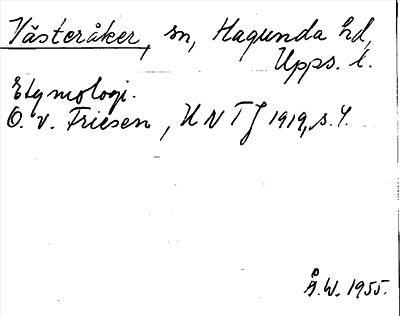 Västeråker, sn, Hagunda hd,
Upps. l.
Etymologi.
O. v. Friesen, UNTJ 1919, s. 4.
Å.W. 1955.